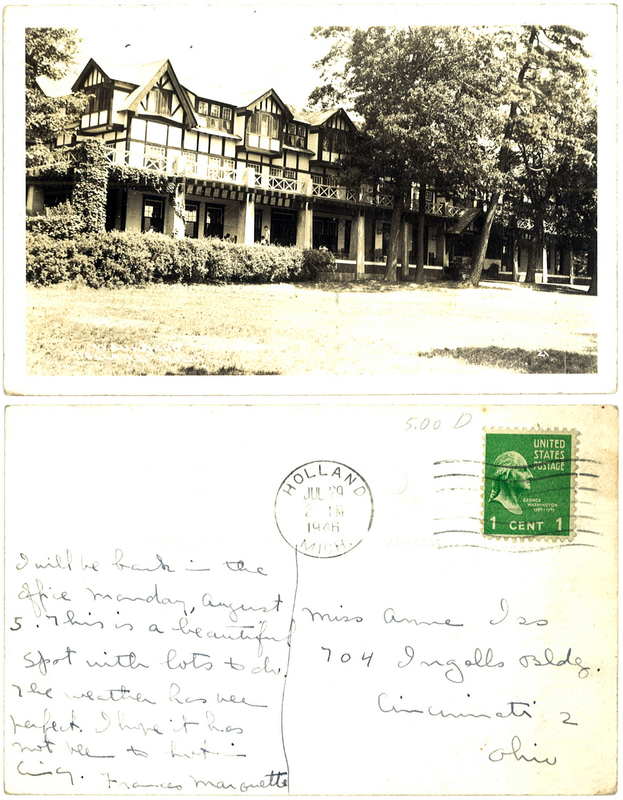 5.00 D
UNITED
STATES
POSTAGE
GEORGE
WASHINGTON
1789-1797
1 CENT 1
HOLLAND
JUL 29
PM
1946
MICH.
I will be back in the
office Monday, August
5. This is a beautiful
spot with lots to do.
The weather has bee
perfect. I hope it has
not bee to hot in
Cincy. Frances Marquette
Miss Anne Iss
704 Ingalls Bldg.
Cincinnati 2
Ohio